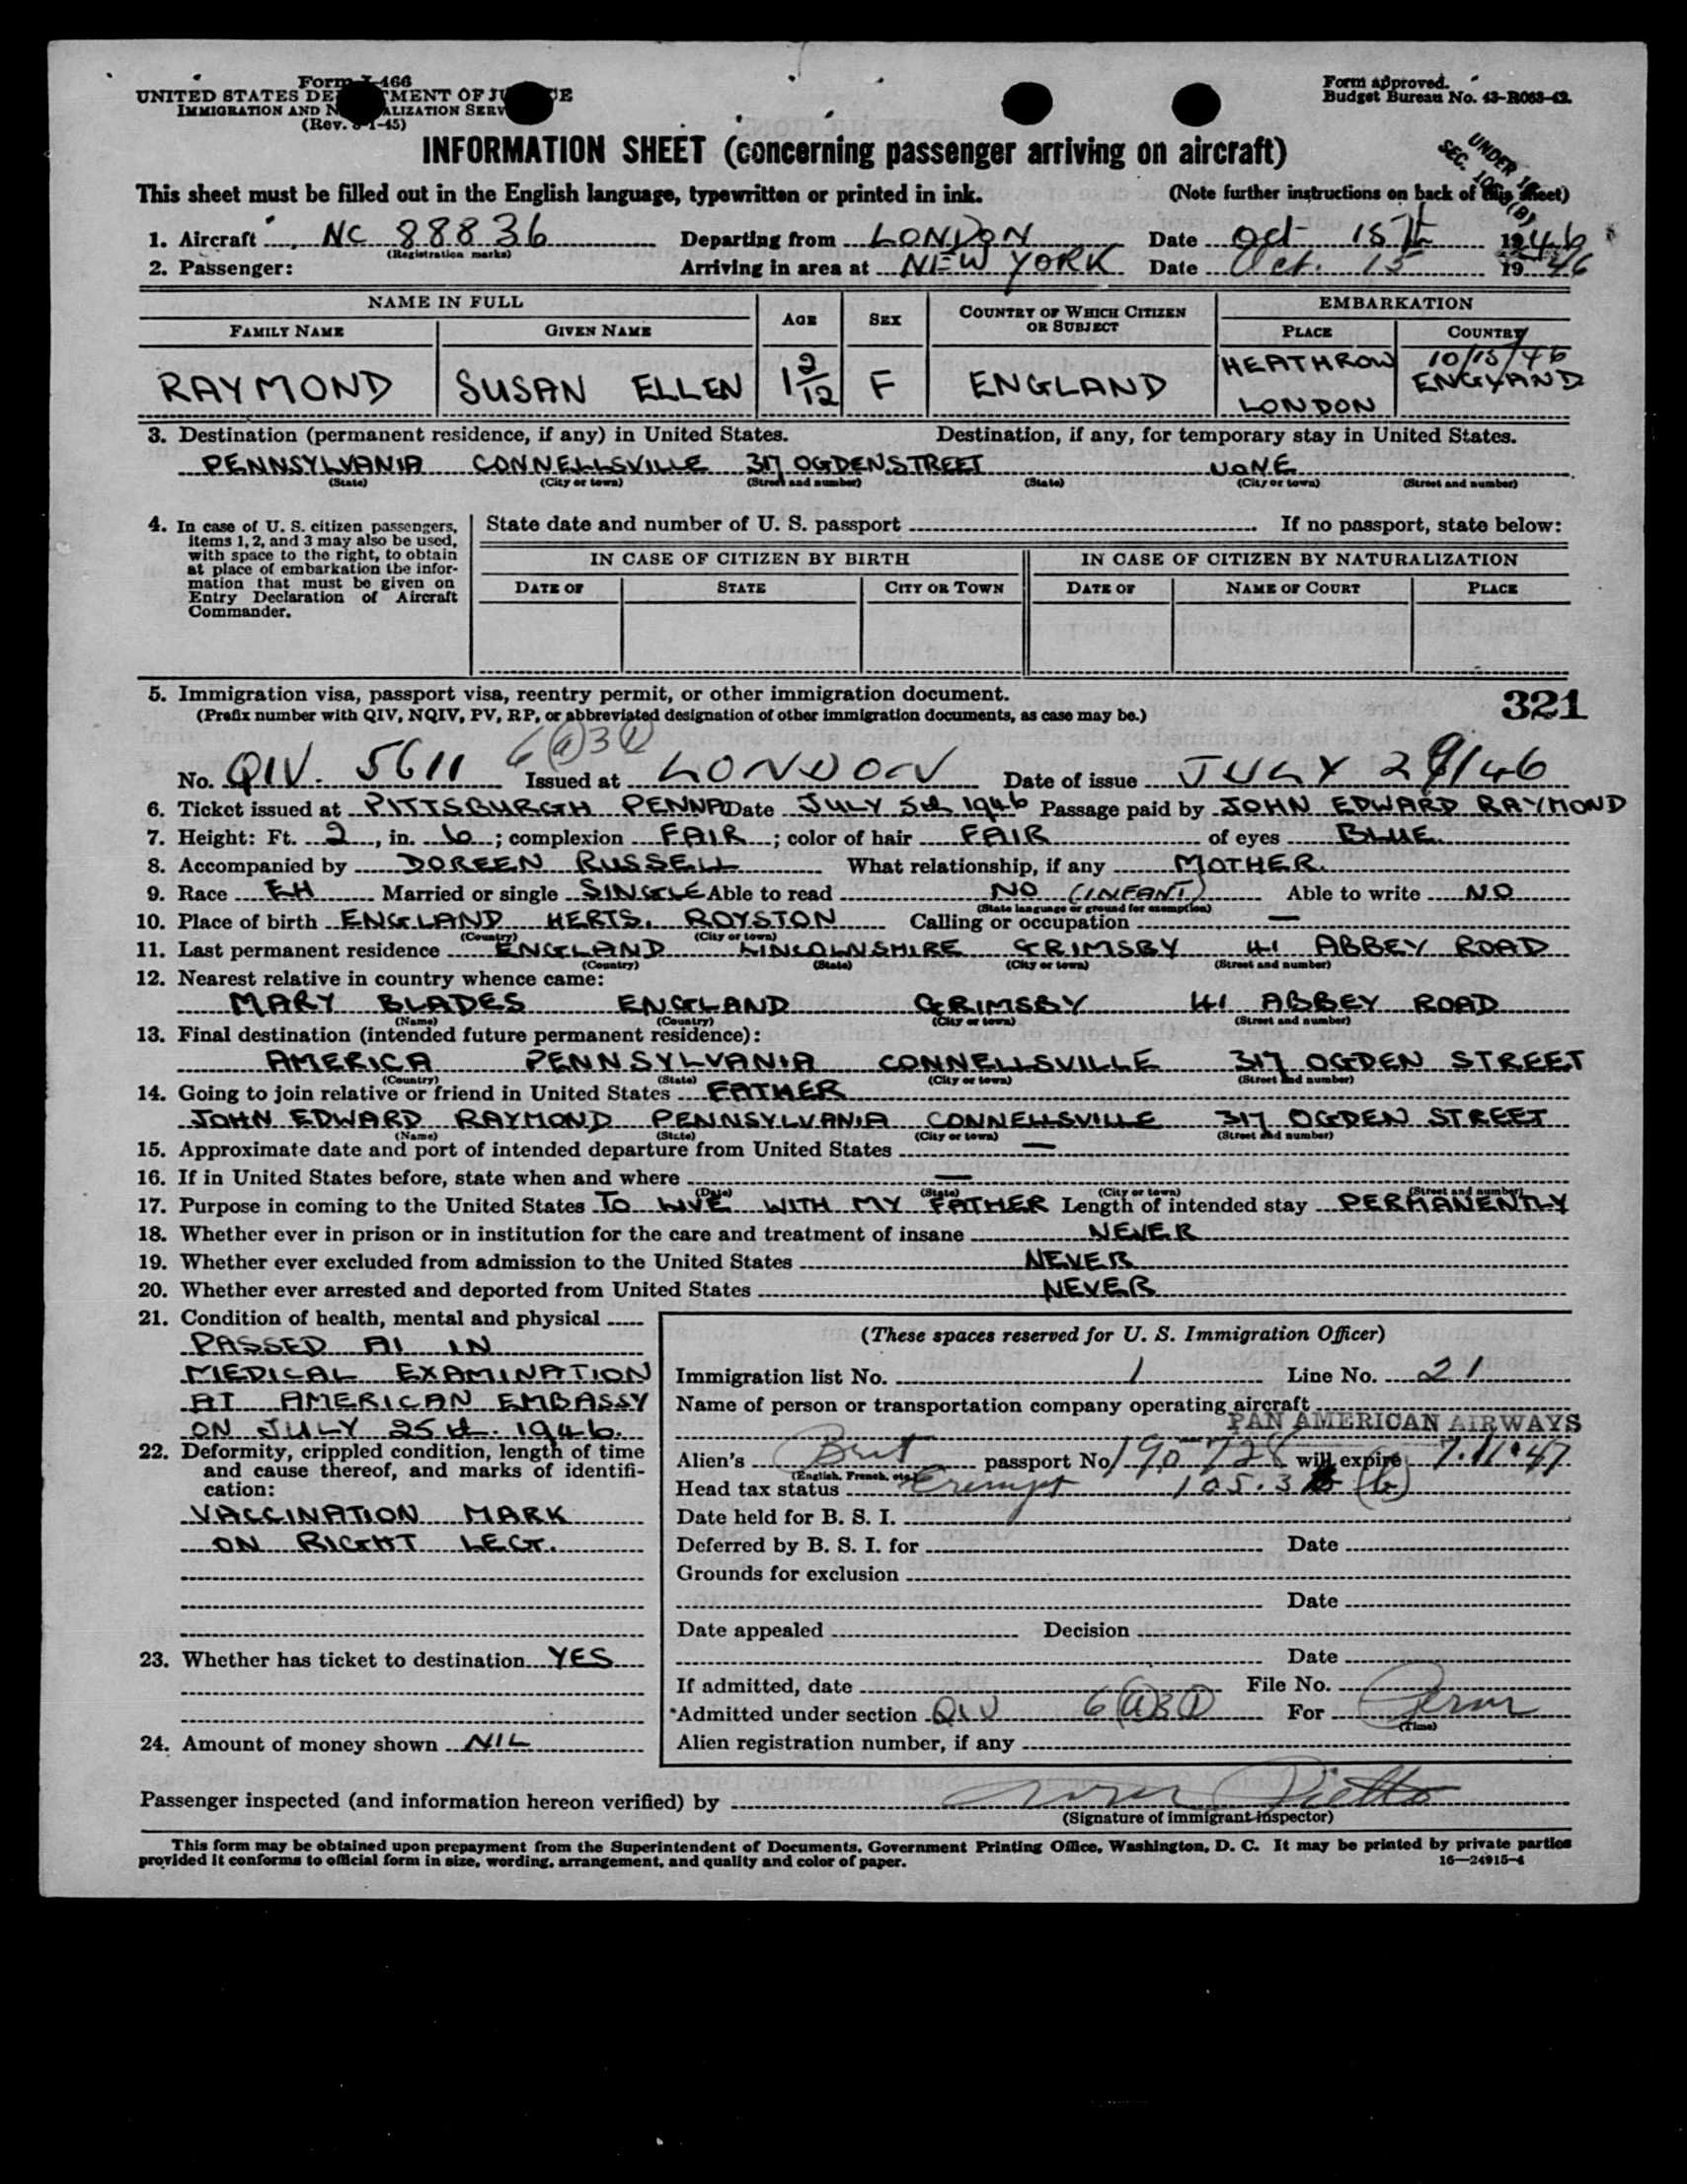 Form I-466
UNITED STATES DEPARTMENT OF JUSTICE
IMMIGRATION AND NATURALIZATION SERVICE
(Rev. 3-1-45)
Form approved.
Budget Bureau No. 43-R063-42.
INFORMATION SHEET (concerning passenger arriving on aircraft)
UNDER 16
SEC. 105 (B)
This sheet must be filled out in the English language, typewritten or printed in ink. (Note further instructions on back of this sheet)
1. Aircraft NC 88836 Departing from LONDON Date Oct 15th 1946
(Registration marks)
2. Passenger: Arriving in area at NEW YORK Date Oct. 15 1946
NAME IN FULL AGE SEX COUNTRY OF WHICH CITIZEN OR SUBJECT EMBARKATION
FAMILY NAME GIVEN NAME PLACE COUNTRY
RAYMOND SUSAN ELLEN 1 2/12 F ENGLAND HEATHROW LONDON 10/15/46 ENGLAND
3. Destination (permanent residence, if any) in United States. Destination, if any, for temporary stay in United States.
PENNSYLVANIA CONNELLSVILLE 317 OGDEN STREET NONE
(State) (City or town) (Street and number) (State) (City or town) (Street and number)
4. In case of U. S. citizen passengers, items 1, 2, and 3 may also be used, with space to the right, to obtain at place of embarkation the information that must be given on Entry Declaration of Aircraft Commander.
State date and number of U. S. passport If no passport, state below:
IN CASE OF CITIZEN BY BIRTH IN CASE OF CITIZEN BY NATURALIZATION
DATE OF STATE CITY OR TOWN DATE OF NAME OF COURT PLACE
5. Immigration visa, passport visa, reentry permit, or other immigration document. 321
(Prefix number with QIV, NQIV, PV, RP, or abbreviated designation of other immigration documents, as case may be.)
6(a)3(1)
No. QIV. 5611 Issued at LONDON Date of issue JULY 29/46
6. Ticket issued at PITTSBURGH PENNA Date JULY 5th 1946 Passage paid by JOHN EDWARD RAYMOND
7. Height: Ft. 2, in. 6; complexion FAIR; color of hair FAIR of eyes BLUE
8. Accompanied by DOREEN RUSSELL What relationship, if any MOTHER.
9. Race EH Married or single SINGLE Able to read NO (INFANT) Able to write NO
(State language or ground for exemption)
10. Place of birth ENGLAND HERTS. ROYSTON Calling or occupation —
(Country) (City or town)
11. Last permanent residence ENGLAND LINCOLNSHIRE GRIMSBY 41 ABBEY ROAD
(Country) (State) (City or town) (Street and number)
12. Nearest relative in country whence came:
MARY BLADES ENGLAND GRIMSBY 41 ABBEY ROAD
(Name) (Country) (City or town) (Street and number)
13. Final destination (intended future permanent residence):
AMERICA PENNSYLVANIA CONNELLSVILLE 317 OGDEN STREET
(Country) (State) (City or town) (Street and number)
14. Going to join relative or friend in United States FATHER
JOHN EDWARD RAYMOND PENNSYLVANIA CONNELLSVILLE 317 OGDEN STREET
(Name) (State) (City or town) (Street and number)
15. Approximate date and port of intended departure from United States —
16. If in United States before, state when and where —
(Date) (State) (City or town) (Street and number)
17. Purpose in coming to the United States TO LIVE WITH MY FATHER Length of intended stay PERMANENTLY
18. Whether ever in prison or in institution for the care and treatment of insane NEVER
19. Whether ever excluded from admission to the United States NEVER
20. Whether ever arrested and deported from United States NEVER
21. Condition of health, mental and physical
PASSED A1 IN
MEDICAL EXAMINATION
AT AMERICAN EMBASSY
ON JULY 25th. 1946.
22. Deformity, crippled condition, length of time
and cause thereof, and marks of identification:
VACCINATION MARK
ON RIGHT LEG.
23. Whether has ticket to destination YES
24. Amount of money shown NIL
(These spaces reserved for U. S. Immigration Officer)
Immigration list No. 1 Line No. 21
Name of person or transportation company operating aircraft
PAN AMERICAN AIRWAYS
Alien's Brit passport No. 190728 will expire 7.11.47
(English, French, etc.)
Head tax status Exempt 105.3 (b)
Date held for B. S. I.
Deferred by B. S. I. for Date
Grounds for exclusion
Date
Date appealed Decision
Date
If admitted, date File No.
*Admitted under section QIV 6(a)3(1) For Perm
(Time)
Alien registration number, if any
Passenger inspected (and information hereon verified) by
(Signature of immigrant inspector)
This form may be obtained upon prepayment from the Superintendent of Documents, Government Printing Office, Washington, D. C. It may be printed by private parties
provided it conforms to official form in size, wording, arrangement, and quality and color of paper. 16—24915-4